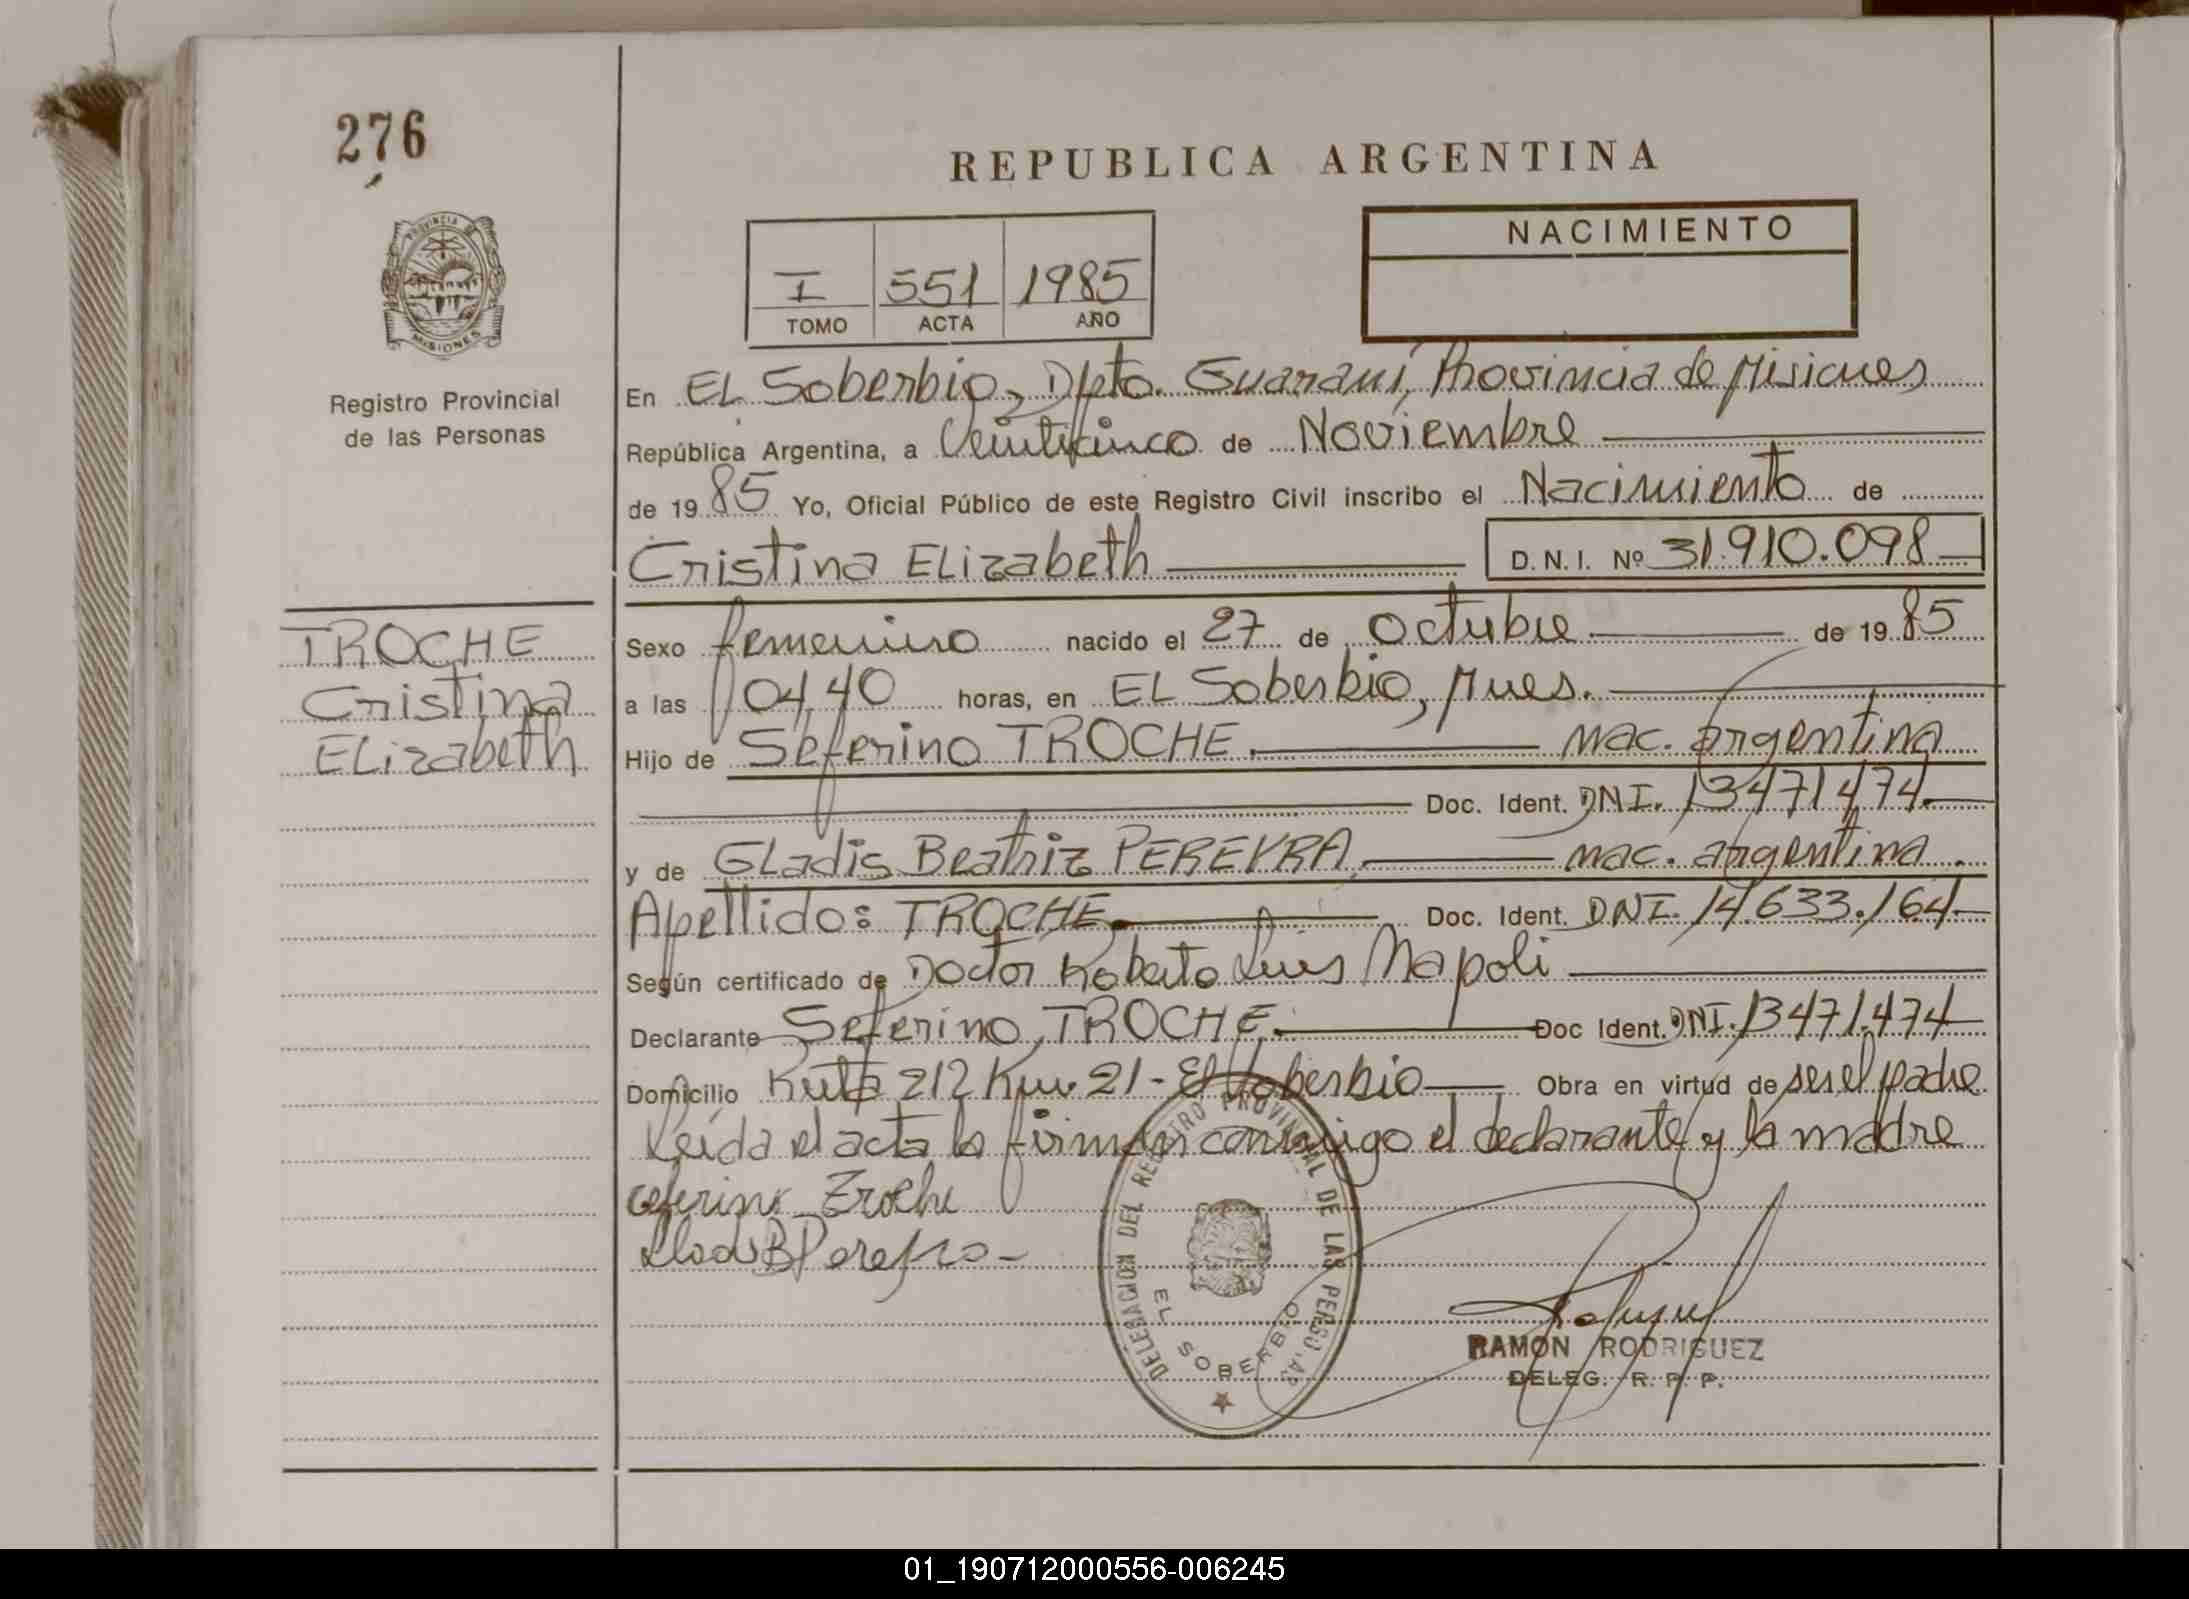 276
PROVINCIA DE
MISIONES
Registro Provincial
de las Personas
TROCHE
Cristina
Elizabeth
REPUBLICA ARGENTINA
I 551 1985
TOMO ACTA AÑO
NACIMIENTO
En EL Soberbio, Dpto. Guaraní, Provincia de Misiones
República Argentina, a Veinticinco de Noviembre
de 1985 Yo, Oficial Público de este Registro Civil inscribo el Nacimiento de
Cristina ELizabeth D.N.I. Nº 31.910.098
Sexo femenino nacido el 27 de Octubre de 1985
a las 04,40 horas, en EL Soberbio, Mnes.
Hijo de Seferino TROCHE. nac. argentina
Doc. Ident. DNI. 13471474.
y de GLadis Beatriz PEREYRA. nac. argentina.
Apellido: TROCHE. Doc. Ident. DNI. 14.633.164
Según certificado de Doctor Roberto Luis Napoli
Declarante Seferino TROCHE. Doc Ident. DNI. 13471.474
Domicilio Ruta 212 Km. 21 - El Soberbio Obra en virtud de ser el padre
Leída el acta la firman conmigo el declarante y la madre
Ceferino Troche
B Pereyra
DELEGACION DEL REGISTRO PROVINCIAL DE LAS PERSONAS
EL SOBERBIO
RAMON RODRIGUEZ
DELEG. R. P. P.
01_190712000556-006245